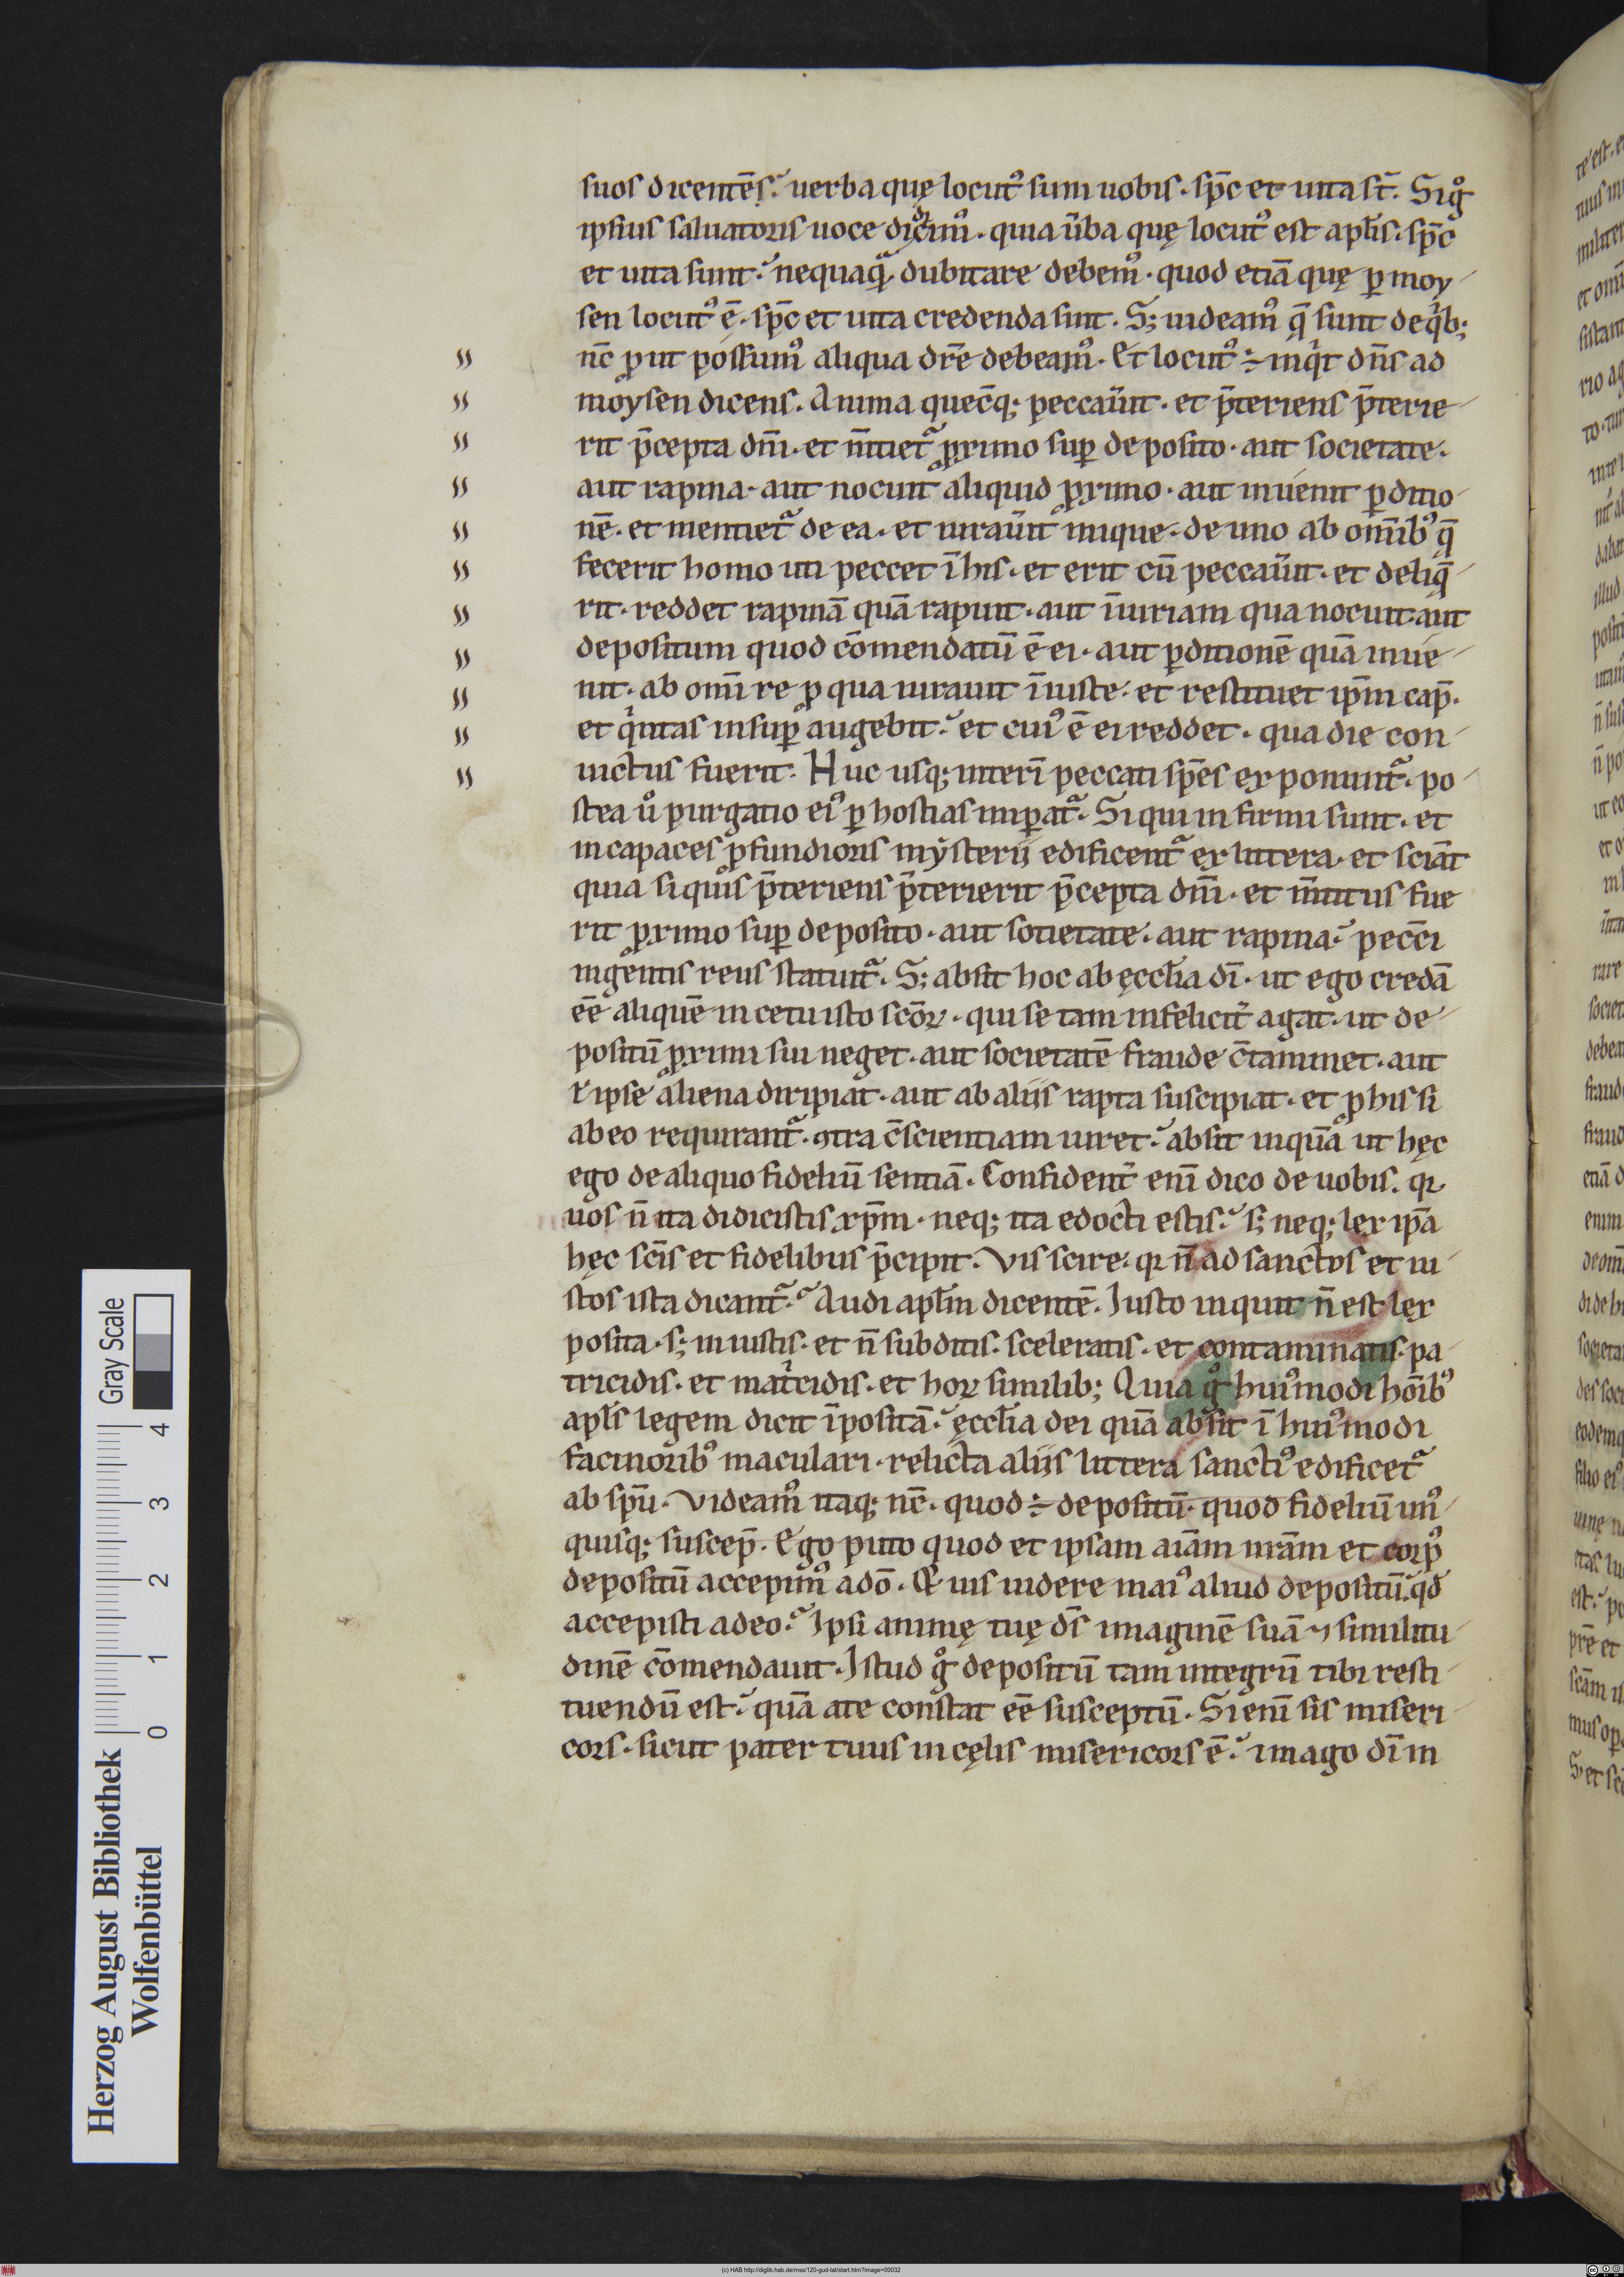 suos dicentēs. uerba quę locutꝰ sum uobis. sp̄c et uita st̄. Si gͦ
ipsius saluatoris uoce dicimꝰ. quia ūba quę locutꝰ est apl̄is. sp̄c
et uita sunt. nequaqᷓ dubitare debemꝰ. quod etiā quę ꝑ moy
sen locutꝰ ē. sp̄c et uita credenda sint. S; uideamꝰ q̄ sunt de qͥb;
nc̄ ꝓut possumꝰ aliqua dr̄e debeamꝰ. Et locutꝰ ÷ inqͥt dn̄s ad
moysen dicens. Anima quec̄q; peccau̅it. et p̄teriens p̄terie
rit p̄cepta dn̄i. et m̄tietᷓ ꝓximo suꝑ deposito. aut societate.
aut rapina. aut nocuit aliquid ꝓximo. aut inuenit ꝑditio
nē. et mentietᷓ de ea. et iurau̅it inique. de uno ab omīibꝰ q̄
fecerit homo uti peccet ī his. et erit cū peccau̅it. et deliq̄
rit. reddet rapinā quā rapuit. aut īiuriam qua nocuit. aut
depositum quod cōmendatū ē ei. aut ꝑditionē quā inue
nit. ab omī re ꝓ qua iurauit īiuste. et restituet ip̄m cap̄.
et qͥntas insuꝑ augebit. et cuiꝰ ē ei reddet. qua die con
uictus fuerit. Huc usq; interī peccati sp̄es exponuntᷓ. po
stea uͦ purgatio eiꝰ ꝑ hostias imꝑatᷓ. Si qui infirmi sunt. et
incapaces ꝓfundioris mẏsterij edificentᷓ ex littera. et sciāt
quia si quis p̄teriens p̄terierit p̄cepta dn̄i. et m̄titus fue
rit ꝓximo suꝑ deposito. aut sotietate. aut rapina. pecc̄i
ingentis reus statuitᷓ. S; absit hoc ab ęccl̄ia dī. ut ego credā
ēē aliquē in cetu isto sc̄oꝝ. qui se tam infelicit̄ agat. ut de
positū ꝓximi sui neget. aut societatē fraude c̄taminet. aut
ł ipse aliena diripiat. aut ab alijs rapta suscipiat. et ꝓ his si
ab eo requirantᷓ. ꝯtra c̄scientiam iuret. absit inquā ut hęc
ego de aliquo fideliū sentiā. Confident̄ enī dico de uobis. qꝛ
uos n̄ ita didicistis xp̄m. neq; ita edocti estis. s; neq; lex ip̄a
hęc sc̄is et fidelibus p̄cipit. Vis scire. qꝛ n̄ ad sanctos et iu
stos ista dicantᷓ. Audi apl̄m dicentē. Iusto inquit n̄ est lex
posita. s; iniustis. et n̄ subditis. sceleratis. et contaminatis. pa
tricidis. et matͥcidis. et hoꝝ similib; Quia gͦ huiꝰmodi hōibꝰ
apl̄s legem dicit īpositā. ęccl̄ia dei quā absit ī huiꝰmodi
facinoribꝰ maculari. relicta alijs littera sanctiꝰ edificetᷓ
ab sp̄u. Videamꝰ itaq; nc̄. quod ÷ depositū. quod fideliū unꝰ
quisq; suscep̄. Ego puto quod et ipsam aīam nrām et corpꝰ
depositū accepimꝰ a dō. Et uis uidere maiꝰ aliud depositū. qđ
accepisti a deo. Ipsi animę tuę ds̄ imaginē suā ⁊ similitu
dinē cōmendauit. Istud gͦ depositū tam integrū tibi resti
tuendū est. quā a te constat ēē susceptū. Si enī sis miseri
cors. sicut pater tuus in cęlis misericors ē. imago dī in
Herzog August Bibliothek
Wolfenbüttel
Gray Scale
0 1 2 3 4
(c) HAB http://diglib.hab.de/mss/120-gud-lat/start.htm?image=00032